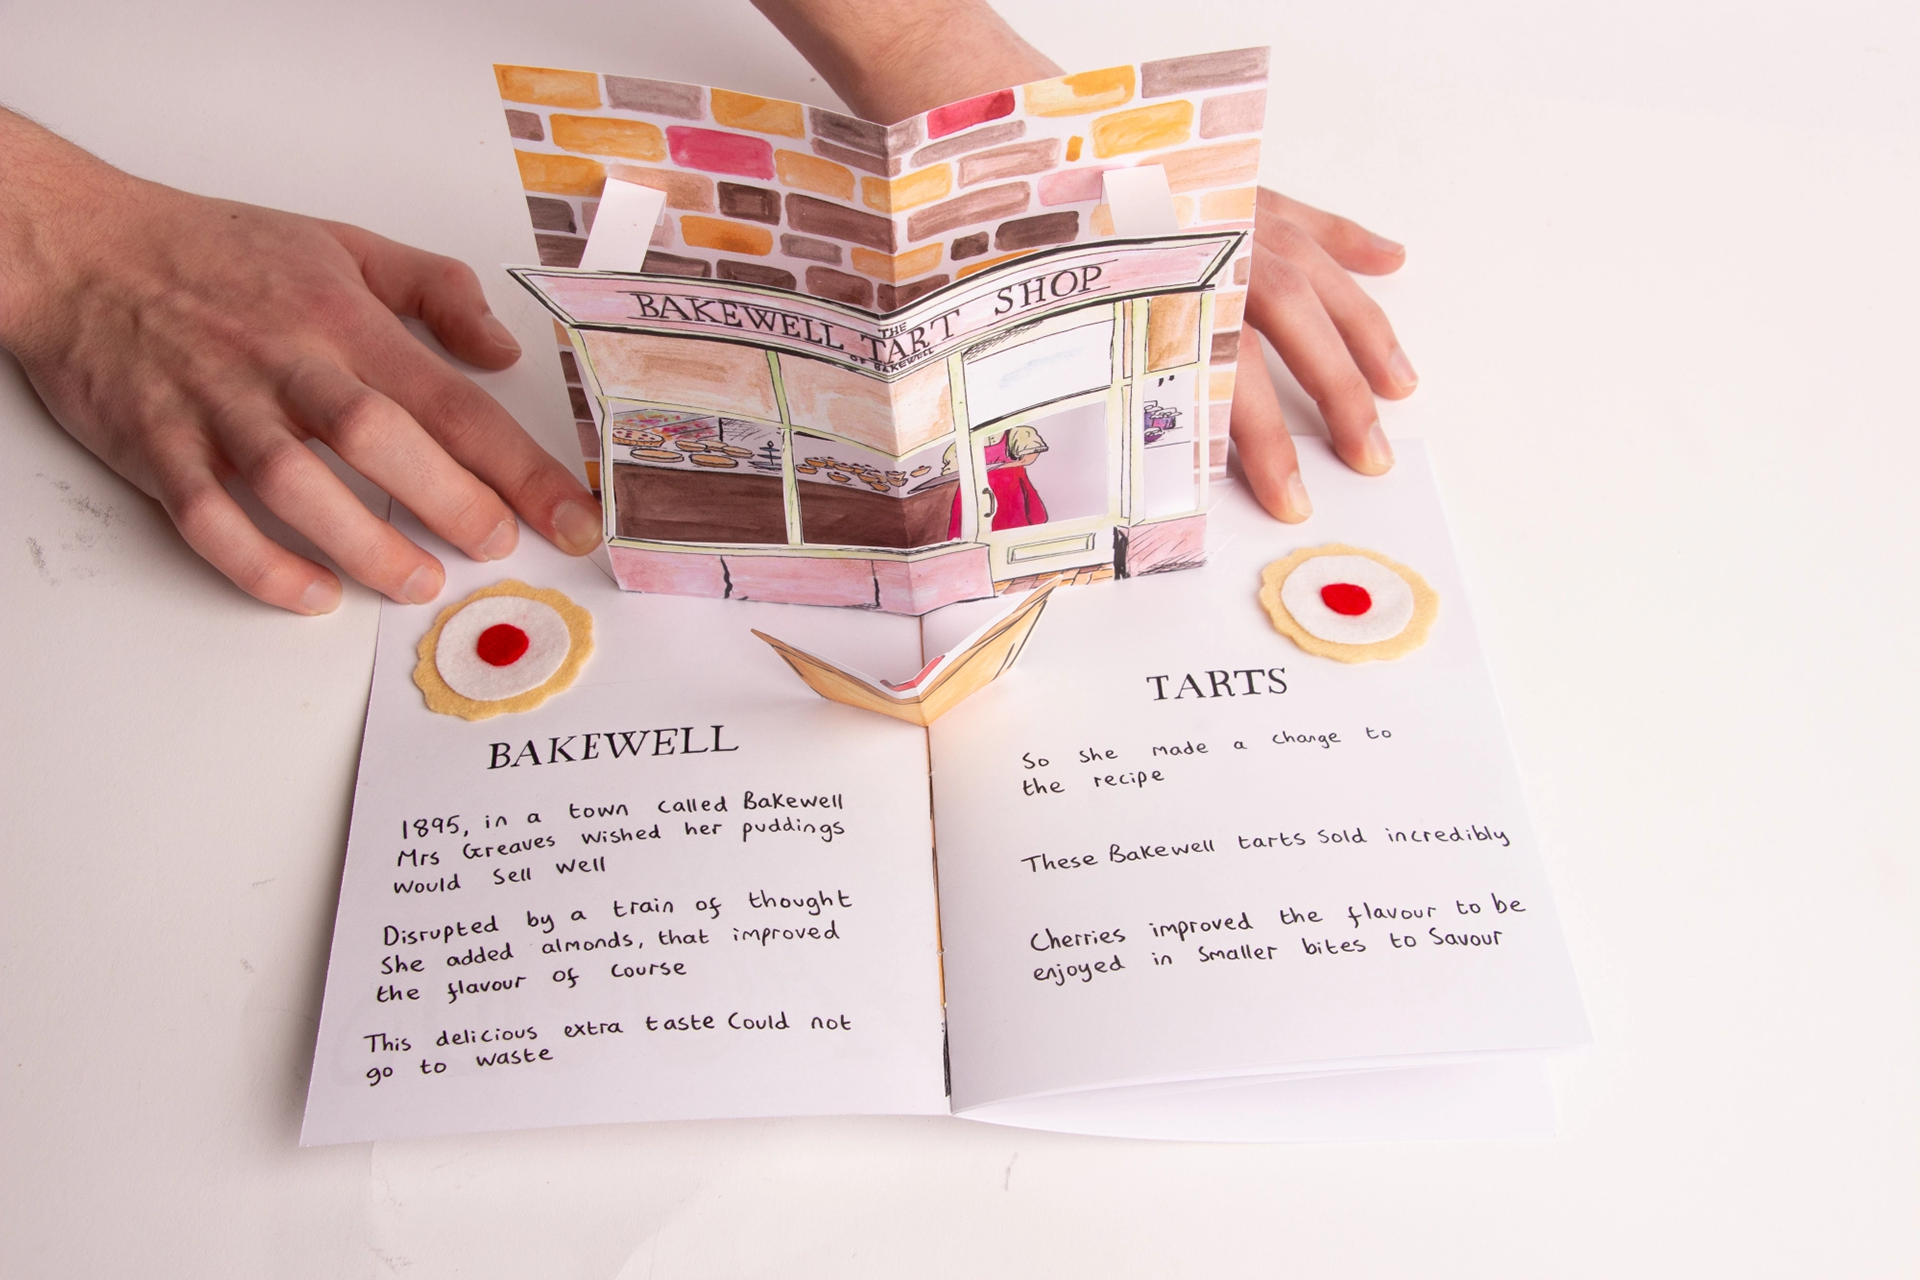 BAKEWELL TART SHOP
THE
OF BAKEWELL
BAKEWELL
1895, in a town called Bakewell
Mrs Greaves wished her puddings
would sell well
Disrupted by a train of thought
She added almonds, that improved
the flavour of course
This delicious extra taste could not
go to waste
TARTS
So she made a change to
the recipe
These Bakewell tarts sold incredibly
Cherries improved the flavour to be
enjoyed in smaller bites to savour